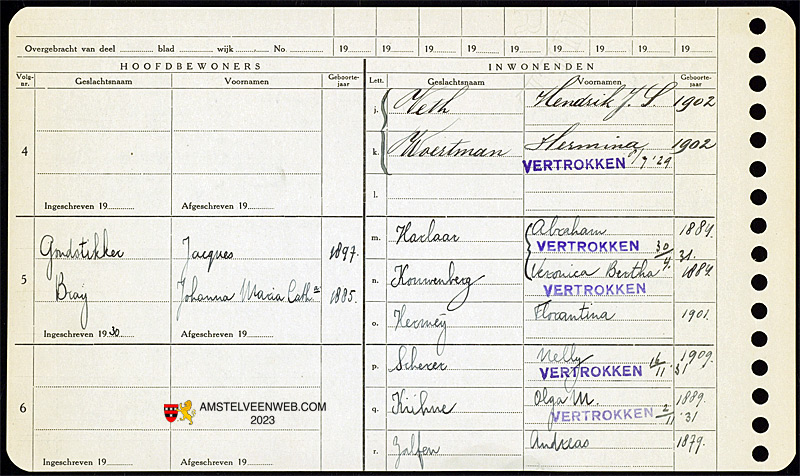 Overgebracht van deel ............ blad ............ wijk ............ No. ............ 19...... 19...... 19...... 19...... 19...... 19...... 19...... 19...... 19......
HOOFDBEWONERS INWONENDEN
Volg-nr. Geslachtsnaam Voornamen Geboorte-jaar Lett. Geslachtsnaam Voornamen Geboorte-jaar
j. Veth Hendrik J. S. 1902
4 k. Woertman Hermina 1902
VERTROKKEN /7 '29
l.
Ingeschreven 19...... Afgeschreven 19......
m. Harlaar Abraham 1889.
Goudstikker Jacques 1897. VERTROKKEN 30/4.31.
5 n. Kouwenberg Veronica Bertha 1889.
Bray Johanna Maria Cath.a 1885. VERTROKKEN
o. Florantina 1901.
Ingeschreven 1930 Afgeschreven 19......
p. Scherer Nelly 1909.
VERTROKKEN 16/11 '31
6 q. Kühne Olga M. 1889.
AMSTELVEENWEB.COM VERTROKKEN 2/11 '31
2023
r. Andreas 1879.
Ingeschreven 19...... Afgeschreven 19......